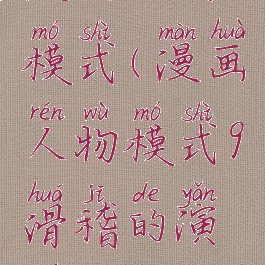 mó shì màn huà
模式(漫画
rén wù mó shì
人物模式9
huá jī de yǎn
滑稽的演